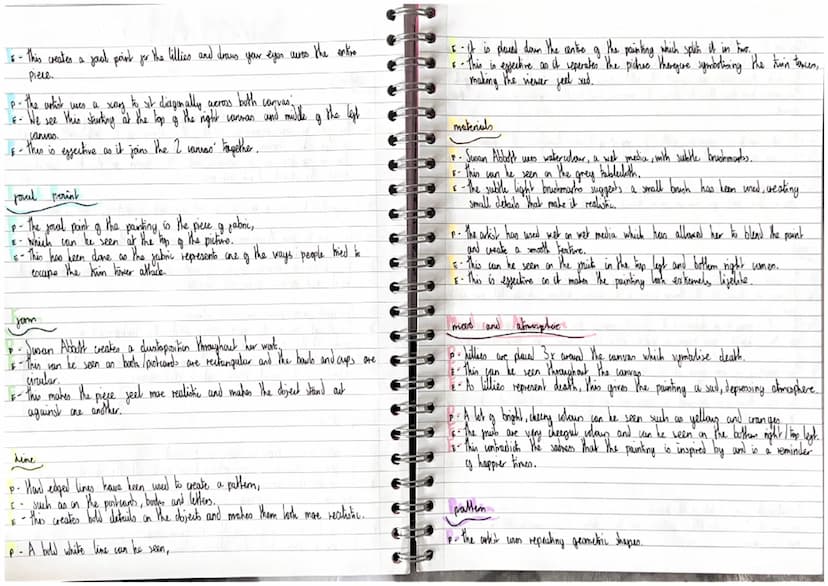 E - This creates a focal point for the lillies and draws your eyes across the entire
piece.
P - The artist uses a scarf to sit diagonally across both canvas'
E - We see this starting at the top of the right canvas and middle of the left
canvas.
E - This is effective as it joins the 2 canvas' together.
Focal Point
P - The focal point of the painting is the piece of fabric,
E - Which can be seen at the top of the picture.
E - This has been done as the fabric represents one of the ways people tried to
escape the twin tower attack.
Form
P - Susan Abbott creates a juxtaposition throughout her work.
E - This can be seen as both postcards are rectangular and the bowls and cups are
circular.
E - This makes the piece feel more realistic and makes the object stand out
against one another.
Line
P - Hard edged lines have been used to create a pattern,
E - such as on the postcards, books and letters.
E - This creates bold details on the objects and makes them look more realistic.
P - A bold white line can be seen,
E - It is placed down the centre of the painting which split it in two.
E - This is effective as it seperates the picture therefore symbolising the twin towers,
making the viewer feel sad.
Materials
P - Susan Abbott uses watercolour, a wet media, with subtle brushmarks.
E - This can be seen on the grey tablecloth.
E - The subtle light brushmarks suggests a small brush has been used, creating
small details that make it realistic.
P - the artist has used wet on wet media which has allowed her to blend the paint
and create a smooth texture.
E - This can be seen on the fruit in the top left and bottom right corner.
E - This is effective as it makes the painting look extremely lifelike.
Mood and Atmosphere
P - Lillies are placed 3x around the canvas which symbolise death.
E - This can be seen throughout the canvas
E - As lillies represent death, this gives the painting a sad, depressing atmosphere
P - A lot of bright, cheery colours can be seen such as yellows and oranges
E - The fruits are very cheerful colours and can be seen on the bottom right / top left.
E - This contradicts the sadness that the painting is inspired by and is a reminder
of happier times.
Pattern
P - the artist uses repeating geometric shapes.